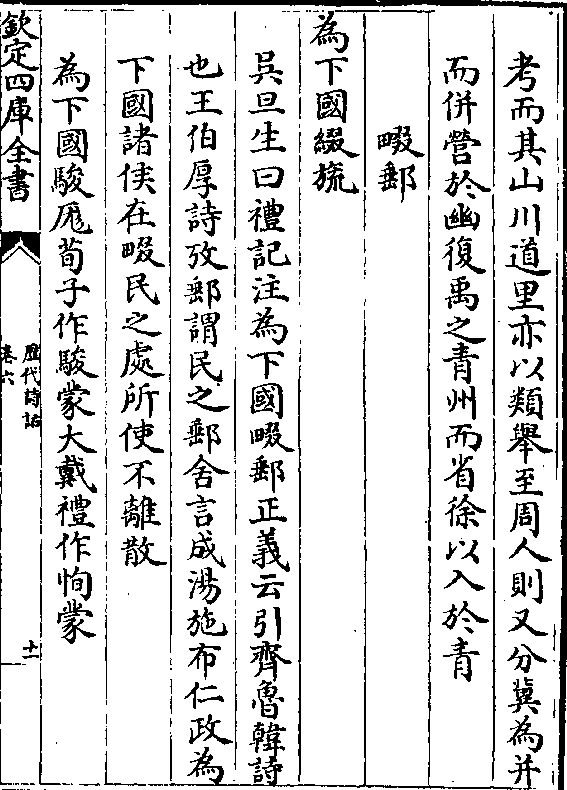 考而其山川道里亦以類舉至周人則又分冀為并
而併營於幽復禹之青州而省徐以入於青
畷郵
為下國綴旒
吳旦生曰禮記注為下國畷郵正義云引齊魯韓詩
也王伯厚詩攷郵謂民之郵舍言成湯施布仁政為
下國諸侯在畷民之處所使不離散
為下國駿厖荀子作駿蒙大戴禮作恂蒙
欽定四庫全書
歷代詩話
卷六
十一